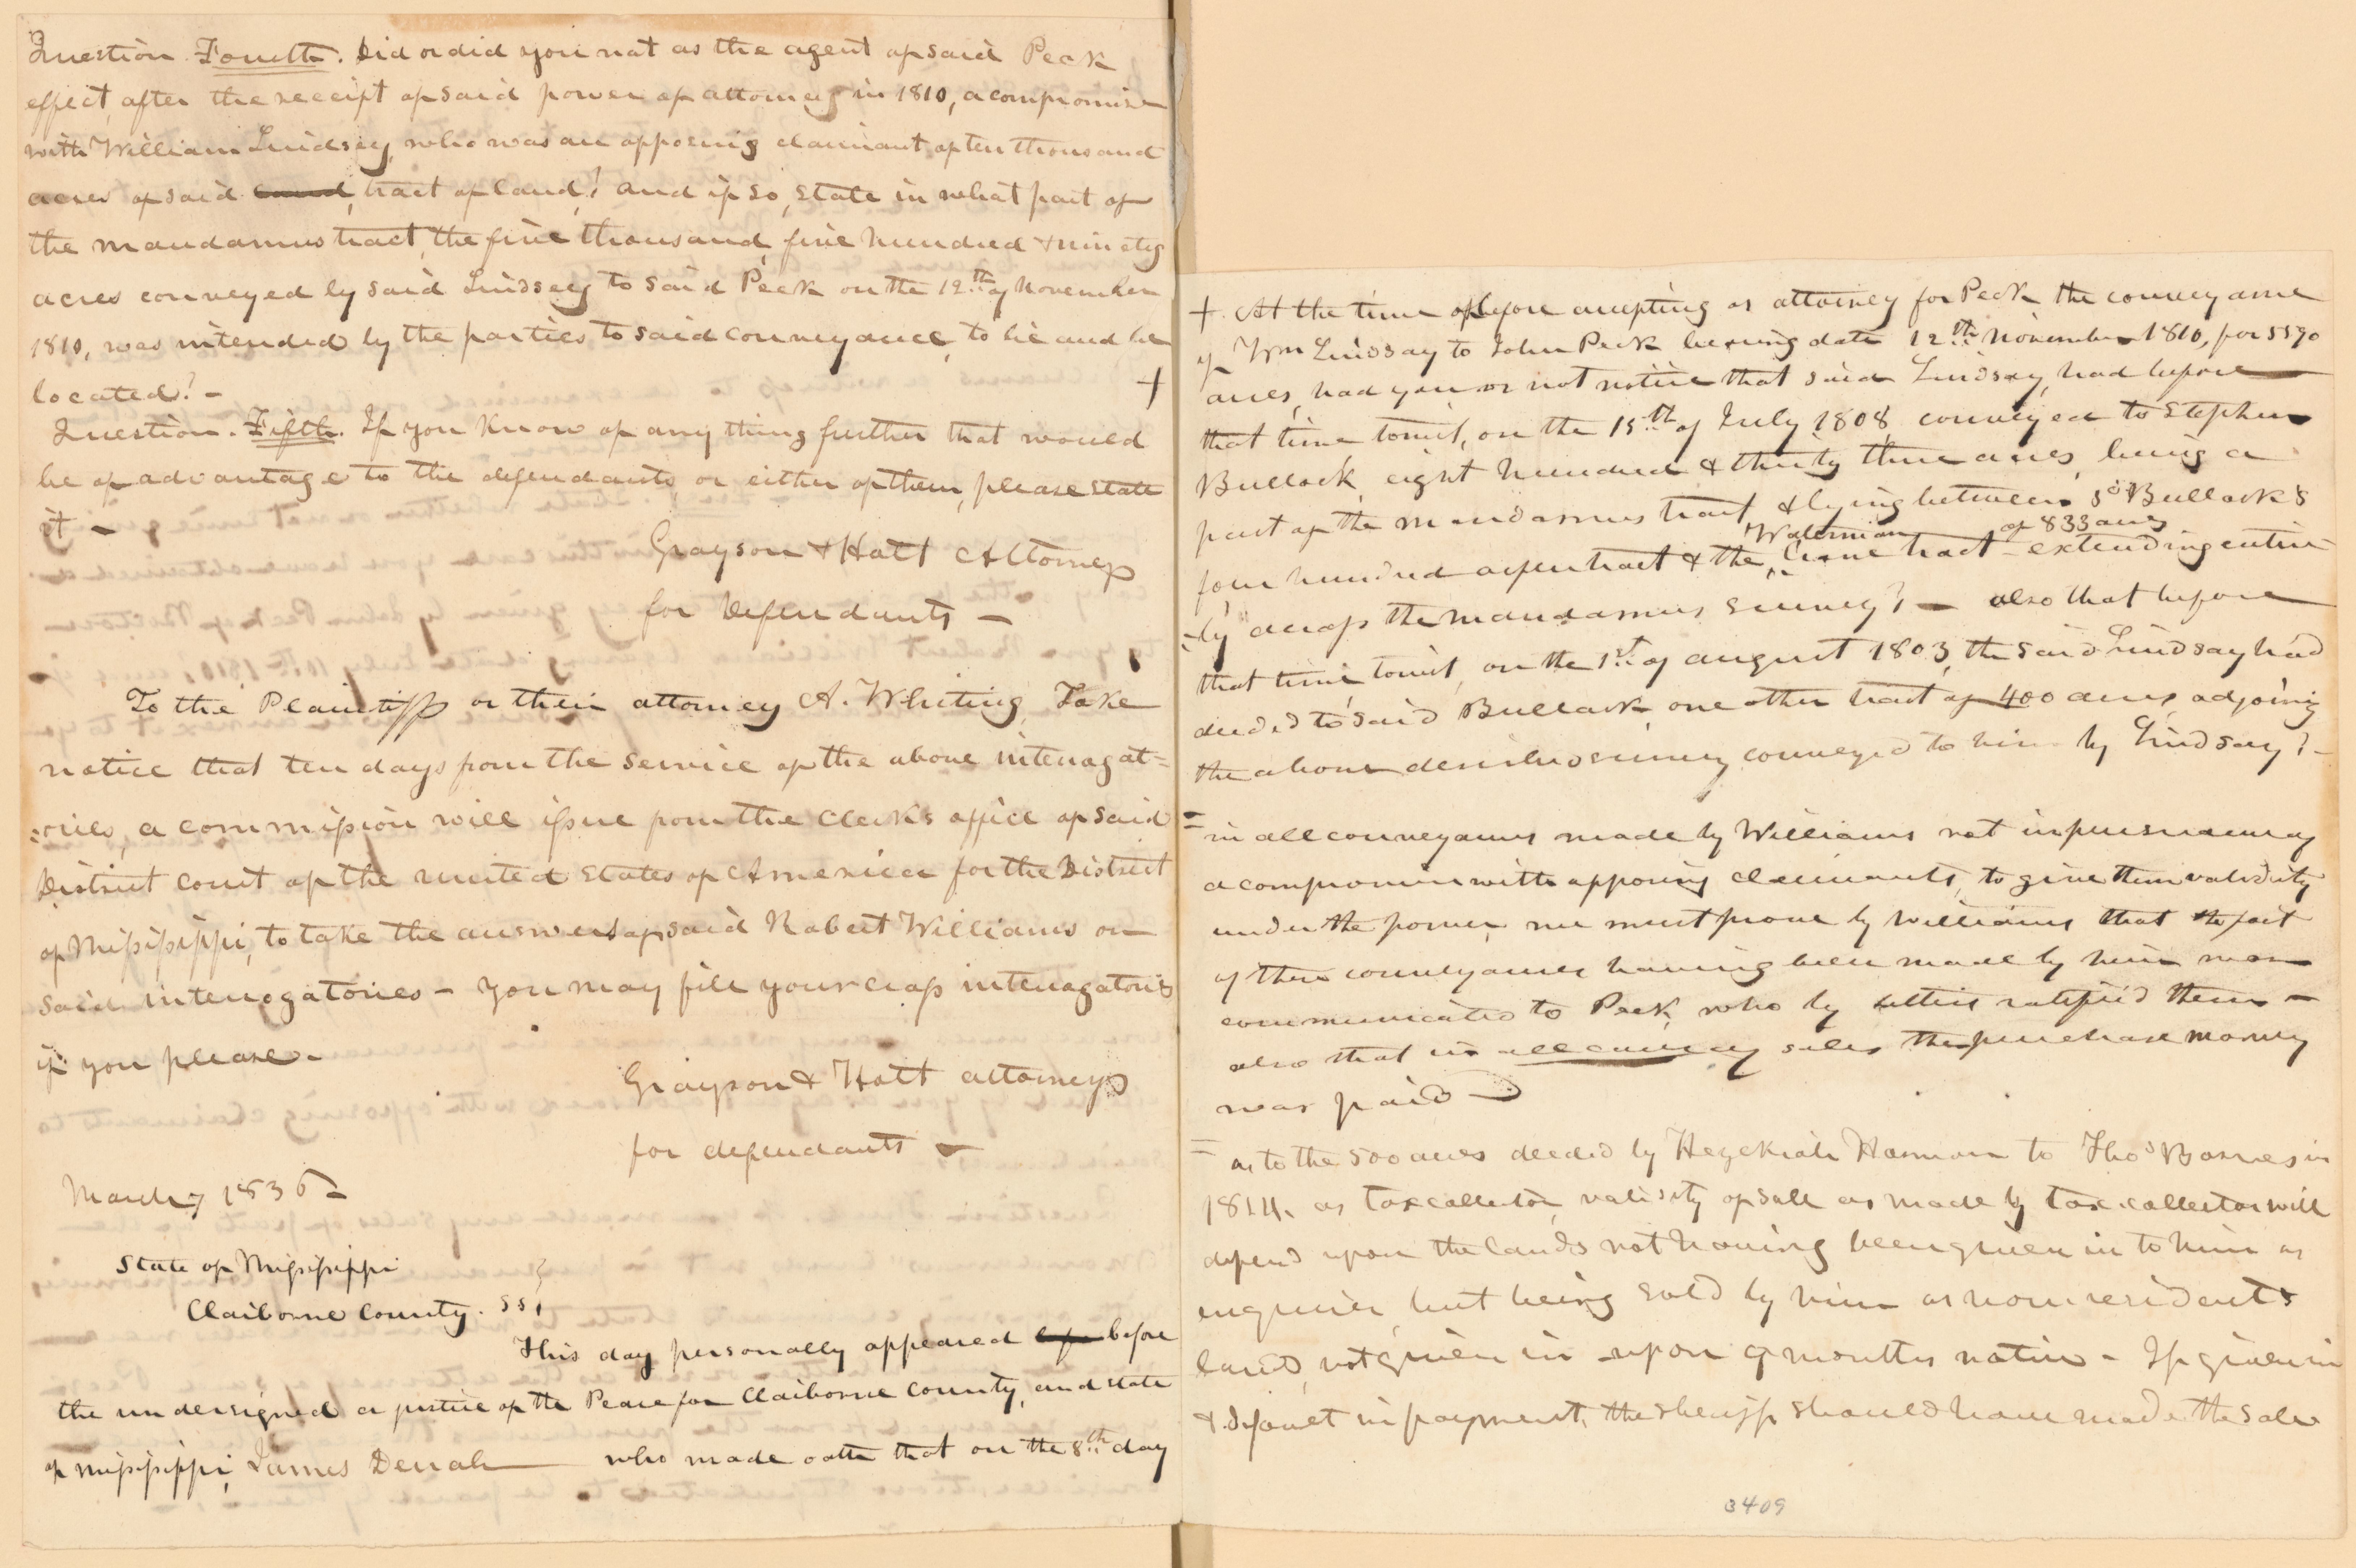 Question Fourth. Did or did you not as the agent of said Peck
effect, after the receipt of said power of attorney in 1810, a compromise
with William Lindsey, who was an opposing claimant of ten thousand
acres of said land, tract of land? and if so, state in what part of
the mandamus tract, the five thousand five hundred & ninety
acres conveyed by said Lindsey to said Peck on the 12th of November
1810, was intended by the parties to said conveyance, to lie and be
located? - +
Question. Fifth. If you know of any thing further that would
be of advantage to the defendants, or either of them, please state
it -
Grayson & Hatt Attorneys
for Defendants -
To the Plaintiffs or their attorney A. Whiting, Take
notice that ten days from the service of the above interrogat=
=ories, a commission will issue from the Clerks office of said
District Court of the united States of America for the District
of Mississippi, to take the answers of said Robert Williams on
said interrogatories - you may file your cross interrogatories
if you please -
Grayson & Hatt attorneys
for defendants -
March 7 1836 -
State of Mississippi
Claiborne County. SS
This day personally appeared before
the undersigned a justice of the Peace for Claiborne County, and state
of Mississippi, James Denah who made oath that on the 8th day
+ At the time of before accepting as attorney for Peck the conveyance
of Wm Lindsay to John Peck bearing date 12th November 1810, for 5590
acres, had you or not notice that said Lindsay, had before
that time towit, on the 15th of July 1808 conveyed to Stephen
Bullock, eight hundred & thirty three acres, being a
part of the mandamus tract & lying between sd Bullock's
four hundred acre tract & the Waterman Crane tract of 833 acres - extending entire
-ly across the mandamus survey? - also that before
that time towit, on the 1st of august 1803, the said Lindsay had
deeded to said Bullock, one other tract of 400 acres, adjoining
the above described survey conveyed to him by Lindsay? -
= in all conveyances made by Williams not in pursuance of
a compromise with opposing claimants, to give them validity
under the power, we must prove by Williams that the fact
of these conveyances having been made by him was
communicated to Peck, who by letters ratified them -
also that in all sales the purchase money
was paid -
= as to the 500 acres deeded by Hezekiah Harman to Thos Barnes in
1814, as tax collector, validity of sale as made by tax-collector will
depend upon the lands not having been given in to him as
enquirer, but being sold by him as non residents
land, not given in upon 9 months notice - If given in
& default in payment, the sheriff should have made the sale
3409